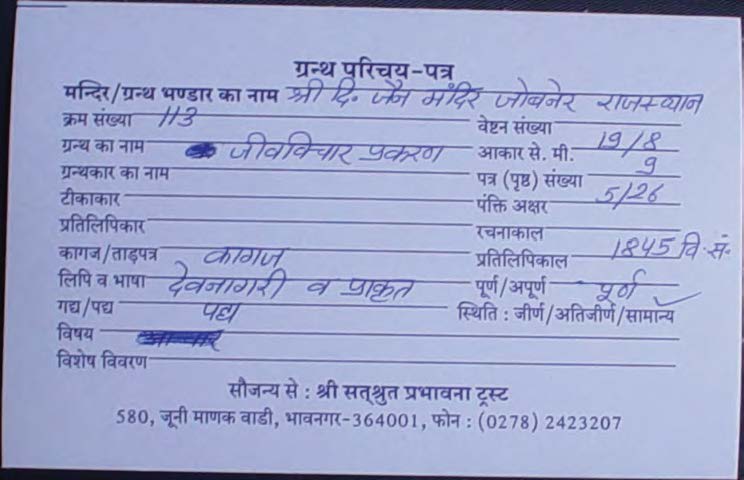 ग्रन्थ परिचय-पत्र
मन्दिर/ग्रन्थ भण्डार का नाम श्री दि. जैन मंदिर जोबनेर राजस्थान
क्रम संख्या 113 वेष्टन संख्या
ग्रन्थ का नाम जीवविचार प्रकरण आकार से. मी. 19/8
ग्रन्थकार का नाम पत्र (पृष्ठ) संख्या 9
टीकाकार पंक्ति अक्षर 5/26
प्रतिलिपिकार रचनाकाल
कागज/ताड़पत्र कागज प्रतिलिपिकाल 1845 वि.सं.
लिपि व भाषा देवनागरी व प्राकृत पूर्ण/अपूर्ण पूर्ण
गद्य/पद्य पद्य स्थिति : जीर्ण/अतिजीर्ण/सामान्य ✓
विषय
विशेष विवरण
सौजन्य से : श्री सत्श्रुत प्रभावना ट्रस्ट
580, जूनी माणक वाडी, भावनगर-364001, फोन : (0278) 2423207